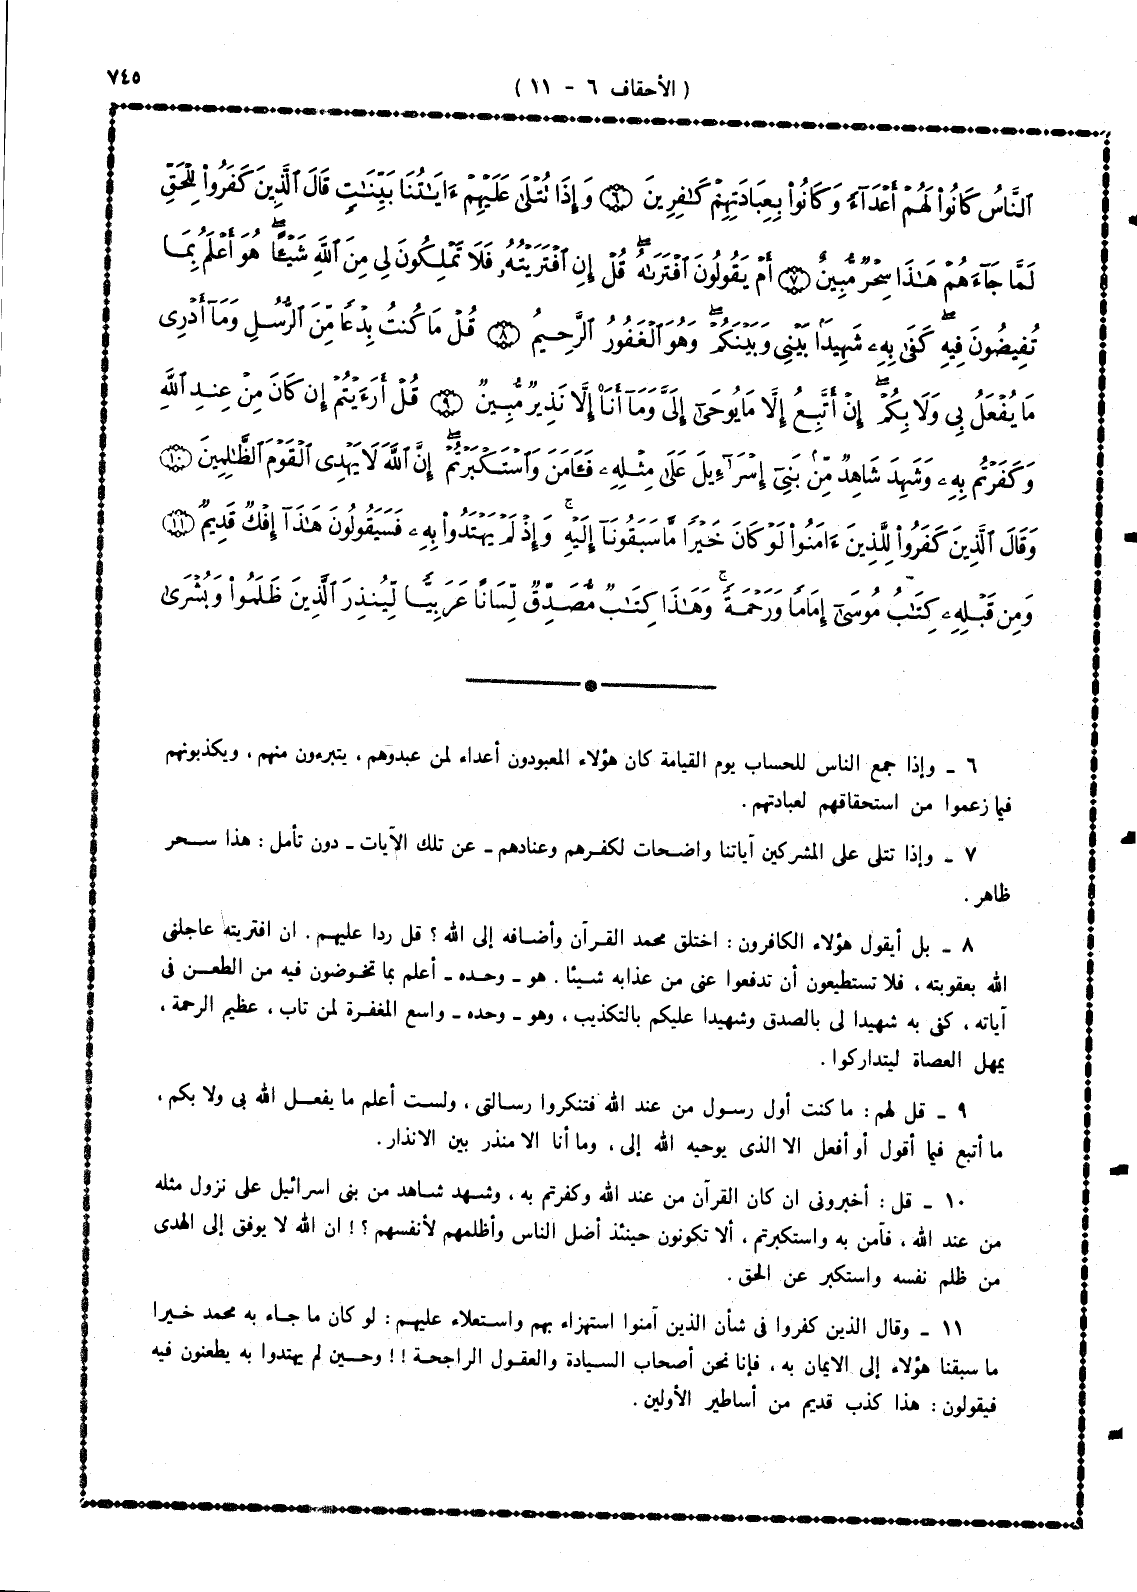 ٧٤٥
( الأحقاف ٦ - ١١ )
ٱلنَّاسُ كَانُوا۟ لَهُمْ أَعْدَآءً وَكَانُوا۟ بِعِبَادَتِهِمْ كَـٰفِرِينَ ﴿٦﴾ وَإِذَا تُتْلَىٰ عَلَيْهِمْ ءَايَـٰتُنَا بَيِّنَـٰتٍ قَالَ ٱلَّذِينَ كَفَرُوا۟ لِلْحَقِّ
لَمَّا جَآءَهُمْ هَـٰذَا سِحْرٌ مُّبِينٌ ﴿٧﴾ أَمْ يَقُولُونَ ٱفْتَرَىٰهُ ۖ قُلْ إِنِ ٱفْتَرَيْتُهُۥ فَلَا تَمْلِكُونَ لِى مِنَ ٱللَّهِ شَيْـًٔا ۖ هُوَ أَعْلَمُ بِمَا
تُفِيضُونَ فِيهِ ۖ كَفَىٰ بِهِۦ شَهِيدًۢا بَيْنِى وَبَيْنَكُمْ ۖ وَهُوَ ٱلْغَفُورُ ٱلرَّحِيمُ ﴿٨﴾ قُلْ مَا كُنتُ بِدْعًا مِّنَ ٱلرُّسُلِ وَمَآ أَدْرِى
مَا يُفْعَلُ بِى وَلَا بِكُمْ ۖ إِنْ أَتَّبِعُ إِلَّا مَا يُوحَىٰٓ إِلَىَّ وَمَآ أَنَا۠ إِلَّا نَذِيرٌ مُّبِينٌ ﴿٩﴾ قُلْ أَرَءَيْتُمْ إِن كَانَ مِنْ عِندِ ٱللَّهِ
وَكَفَرْتُم بِهِۦ وَشَهِدَ شَاهِدٌ مِّنۢ بَنِىٓ إِسْرَٰٓءِيلَ عَلَىٰ مِثْلِهِۦ فَـَٔامَنَ وَٱسْتَكْبَرْتُمْ ۖ إِنَّ ٱللَّهَ لَا يَهْدِى ٱلْقَوْمَ ٱلظَّـٰلِمِينَ ﴿١٠﴾
وَقَالَ ٱلَّذِينَ كَفَرُوا۟ لِلَّذِينَ ءَامَنُوا۟ لَوْ كَانَ خَيْرًا مَّا سَبَقُونَآ إِلَيْهِ ۚ وَإِذْ لَمْ يَهْتَدُوا۟ بِهِۦ فَسَيَقُولُونَ هَـٰذَآ إِفْكٌ قَدِيمٌ ﴿١١﴾
وَمِن قَبْلِهِۦ كِتَـٰبُ مُوسَىٰٓ إِمَامًا وَرَحْمَةً ۚ وَهَـٰذَا كِتَـٰبٌ مُّصَدِّقٌ لِّسَانًا عَرَبِيًّا لِّيُنذِرَ ٱلَّذِينَ ظَلَمُوا۟ وَبُشْرَىٰ
٦ - وإذا جمع الناس للحساب يوم القيامة كان هؤلاء المعبودون أعداء لمن عبدوهم، يتبرءون منهم، ويكذبونهم
فيما زعموا من استحقاقهم لعبادتهم.
٧ - وإذا تتلى على المشركين آياتنا واضحات لكفرهم وعنادهم - عن تلك الآيات - دون تأمل: هذا سحر
ظاهر.
٨ - بل أيقول هؤلاء الكافرون: اختلق محمد القرآن وأضافه إلى الله؟ قل ردا عليهم. ان افتريته عاجلنى
الله بعقوبته، فلا تستطيعون أن تدفعوا عنى من عذابه شيئا. هو - وحده - أعلم بما تخوضون فيه من الطعن فى
آياته، كفى به شهيدا لى بالصدق وشهيدا عليكم بالتكذيب، وهو - وحده - واسع المغفرة لمن تاب، عظيم الرحمة،
يمهل العصاة ليتداركوا.
٩ - قل لهم: ما كنت أول رسول من عند الله فتنكروا رسالتى، ولست أعلم ما يفعل الله بى ولا بكم،
ما أتبع فيما أقول أو أفعل الا الذى يوحيه الله إلى، وما أنا الا منذر بين الانذار.
١٠ - قل: أخبرونى ان كان القرآن من عند الله وكفرتم به، وشهد شاهد من بنى اسرائيل على نزول مثله
من عند الله، فآمن به واستكبرتم، ألا تكونون حينئذ أضل الناس وأظلمهم لأنفسهم؟! ان الله لا يوفق إلى الهدى
من ظلم نفسه واستكبر عن الحق.
١١ - وقال الذين كفروا فى شأن الذين آمنوا استهزاء بهم واستعلاء عليهم: لو كان ما جاء به محمد خيرا
ما سبقنا هؤلاء إلى الايمان به، فإنا نحن أصحاب السيادة والعقول الراجحة!! وحين لم يهتدوا به يطعنون فيه
فيقولون: هذا كذب قديم من أساطير الأولين.